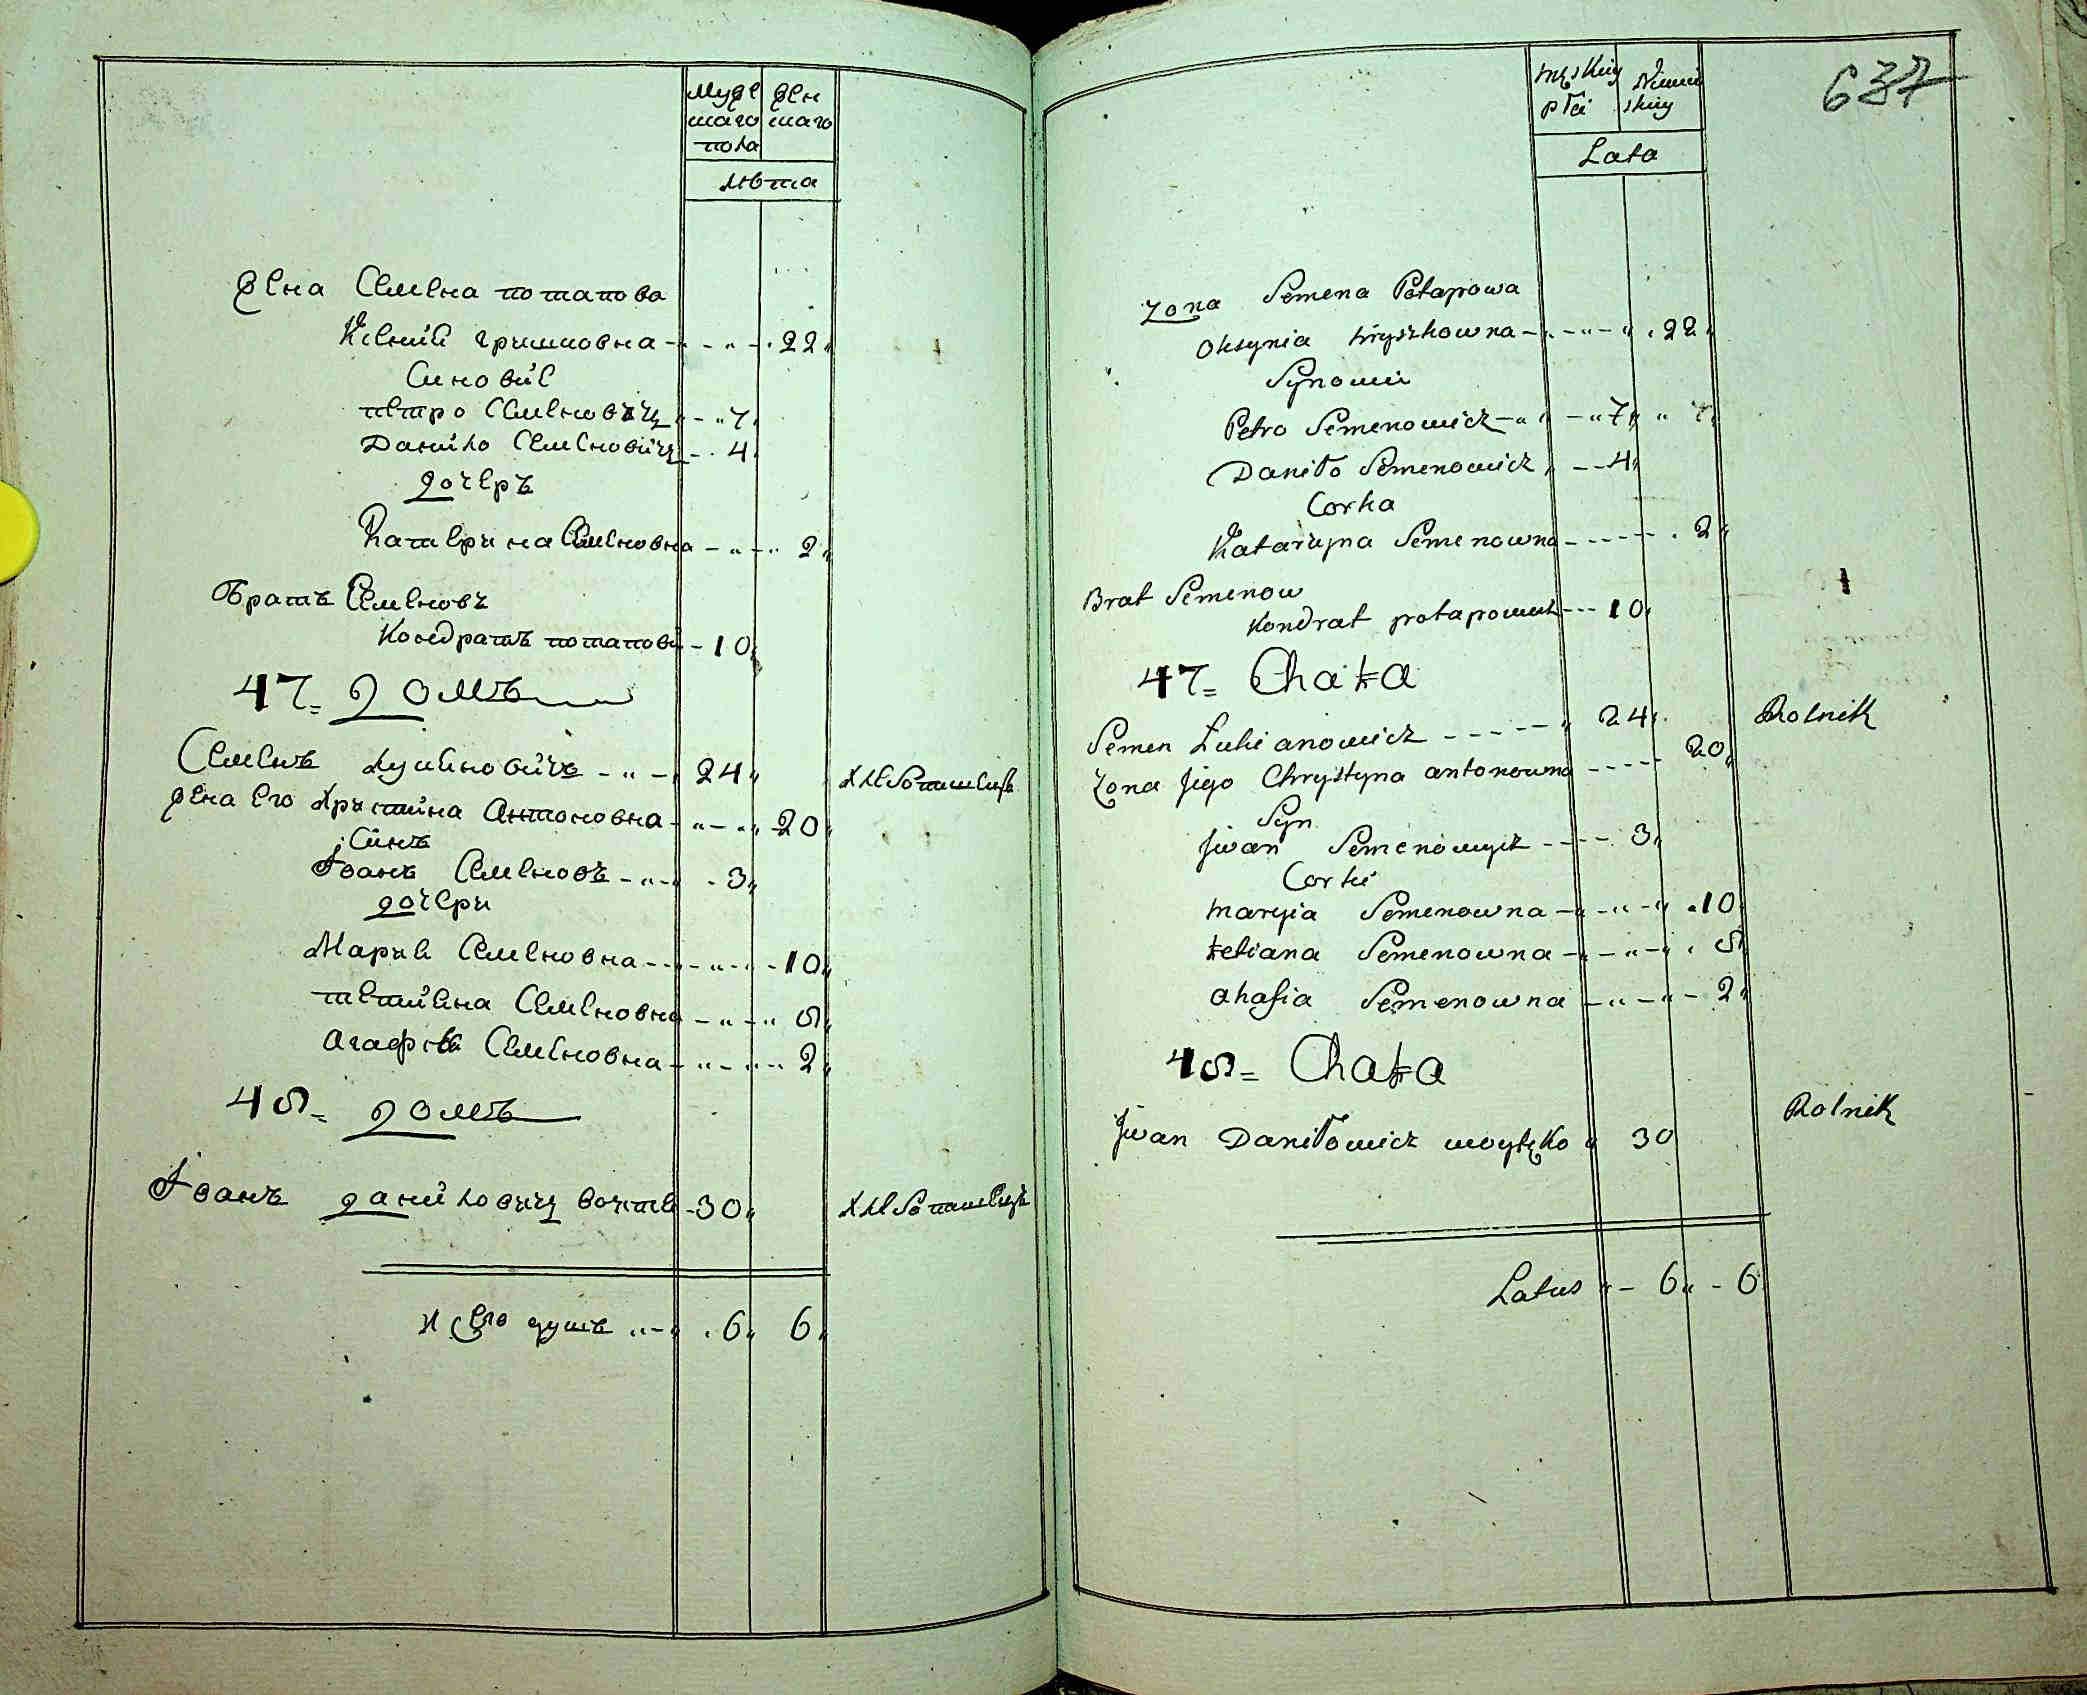 Муже жен
шаго шаго
пола
лѣта
жена Семена потапова
Ксенія гришковна - - „ - „ 22 „
Синовіе
петро Семеновичъ „ - „ 7 „
Данило Семеновичъ - „ 4 „
дочеръ
Катерина Семеновна - „ - „ 2 „
Братъ Семеновъ
Кондратъ потапови - 10 „
47 = домъ
Семенъ лукиновичъ - „ - „ 24 „
жена Его Христина Антоновна - „ - „ 20 „
Синъ
Іванъ Семеновъ - „ - „ 3 „
дочери
Марие Семеновна - - „ - „ - 10 „
тетиена Семеновна - „ - „ 5 „
Агафия Семеновна - „ - „ - 2 „
48 = домъ
Іванъ данйловичъ - 30 „
душъ „ - „ 6 „ 6 „
637
męskiey Niewie
płci skiey
Lata
Zona Semena Potapowa
Oksynia hryszkowna - „ - „ - „ 22 „
Synowie
Petro Semenowicz - „ - „ 7 „
Daniło Semenowicz „ - - 4 „
Corka
Kataryna Semenowna - - - - - 2 „
Brat Semenow
Kondrat potapowicz - - - 10 „
47 = Chata
Semen Lukianowicz - - - - - „ 24 „ Rolnik
Zona Jego Chrystyna antonowna - - - - - 20 „
Syn
Jwan Semenowycz - - - - 3 „
Corki
maryia Semenowna - „ - „ - „ 10 „
tetiana Semenowna - „ - „ - „ 5
ahafia Semenowna - „ - „ - 2 „
48 = Chata
Rolnik
Jwan Daniłowicz woytęko „ 30
Latus „ - 6 „ - 6